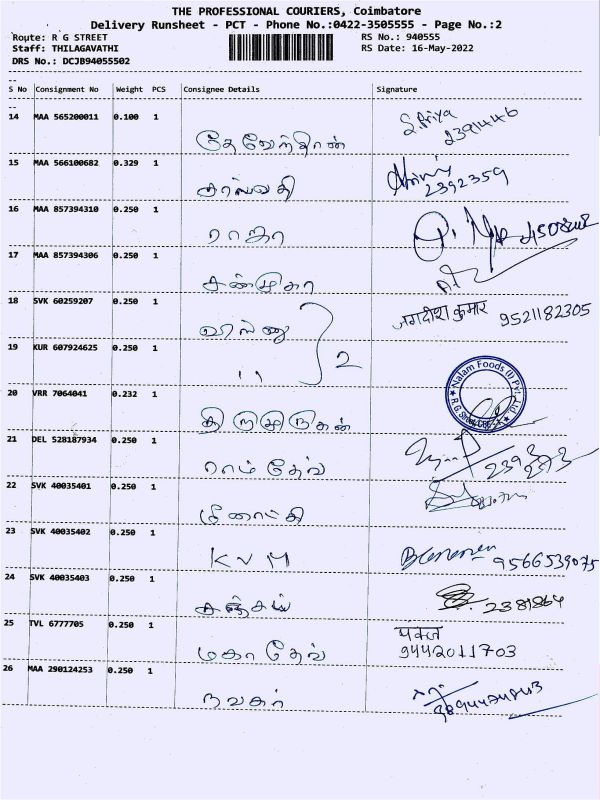 THE PROFESSIONAL COURIERS, Coimbatore
Delivery Runsheet - PCT - Phone No.:0422-3505555 - Page No.:2
Route: R G STREET
RS No.: 940555
Staff: THILAGAVATHI
RS Date: 16-May-2022
DRS No.: DCJB94055502
S No Consignment No Weight PCS Consignee Details Signature
14 MAA 565200011 0.100 1
தேவேந்திரன் S.Priya
2391446
15 MAA 566100682 0.329 1
சரஸ்வதி
2392359
16 MAA 857394310 0.250 1
ராஜா
17 MAA 857394306 0.250 1
சண்முகா
18 SVK 60259207 0.250 1
விஷ்ணு जगदीश कुमार 9521182305
19 KUR 607924625 0.250 1
" 2
20 VRR 7064041 0.232 1
Nalam Foods (I) Pvt. Ltd
R.G. Street, CBE-1
திருமுருகன்
21 DEL 528187934 0.250 1
ராம்தேவ்
22 SVK 40035401 0.250 1
மீனாட்சி
23 SVK 40035402 0.250 1
KVM 9566539075
24 SVK 40035403 0.250 1
சஞ்சய் 2381864
25 TVL 6777705 0.250 1
மகாதேவ் पंकज
9442011703
26 MAA 290124253 0.250 1
நவகர்